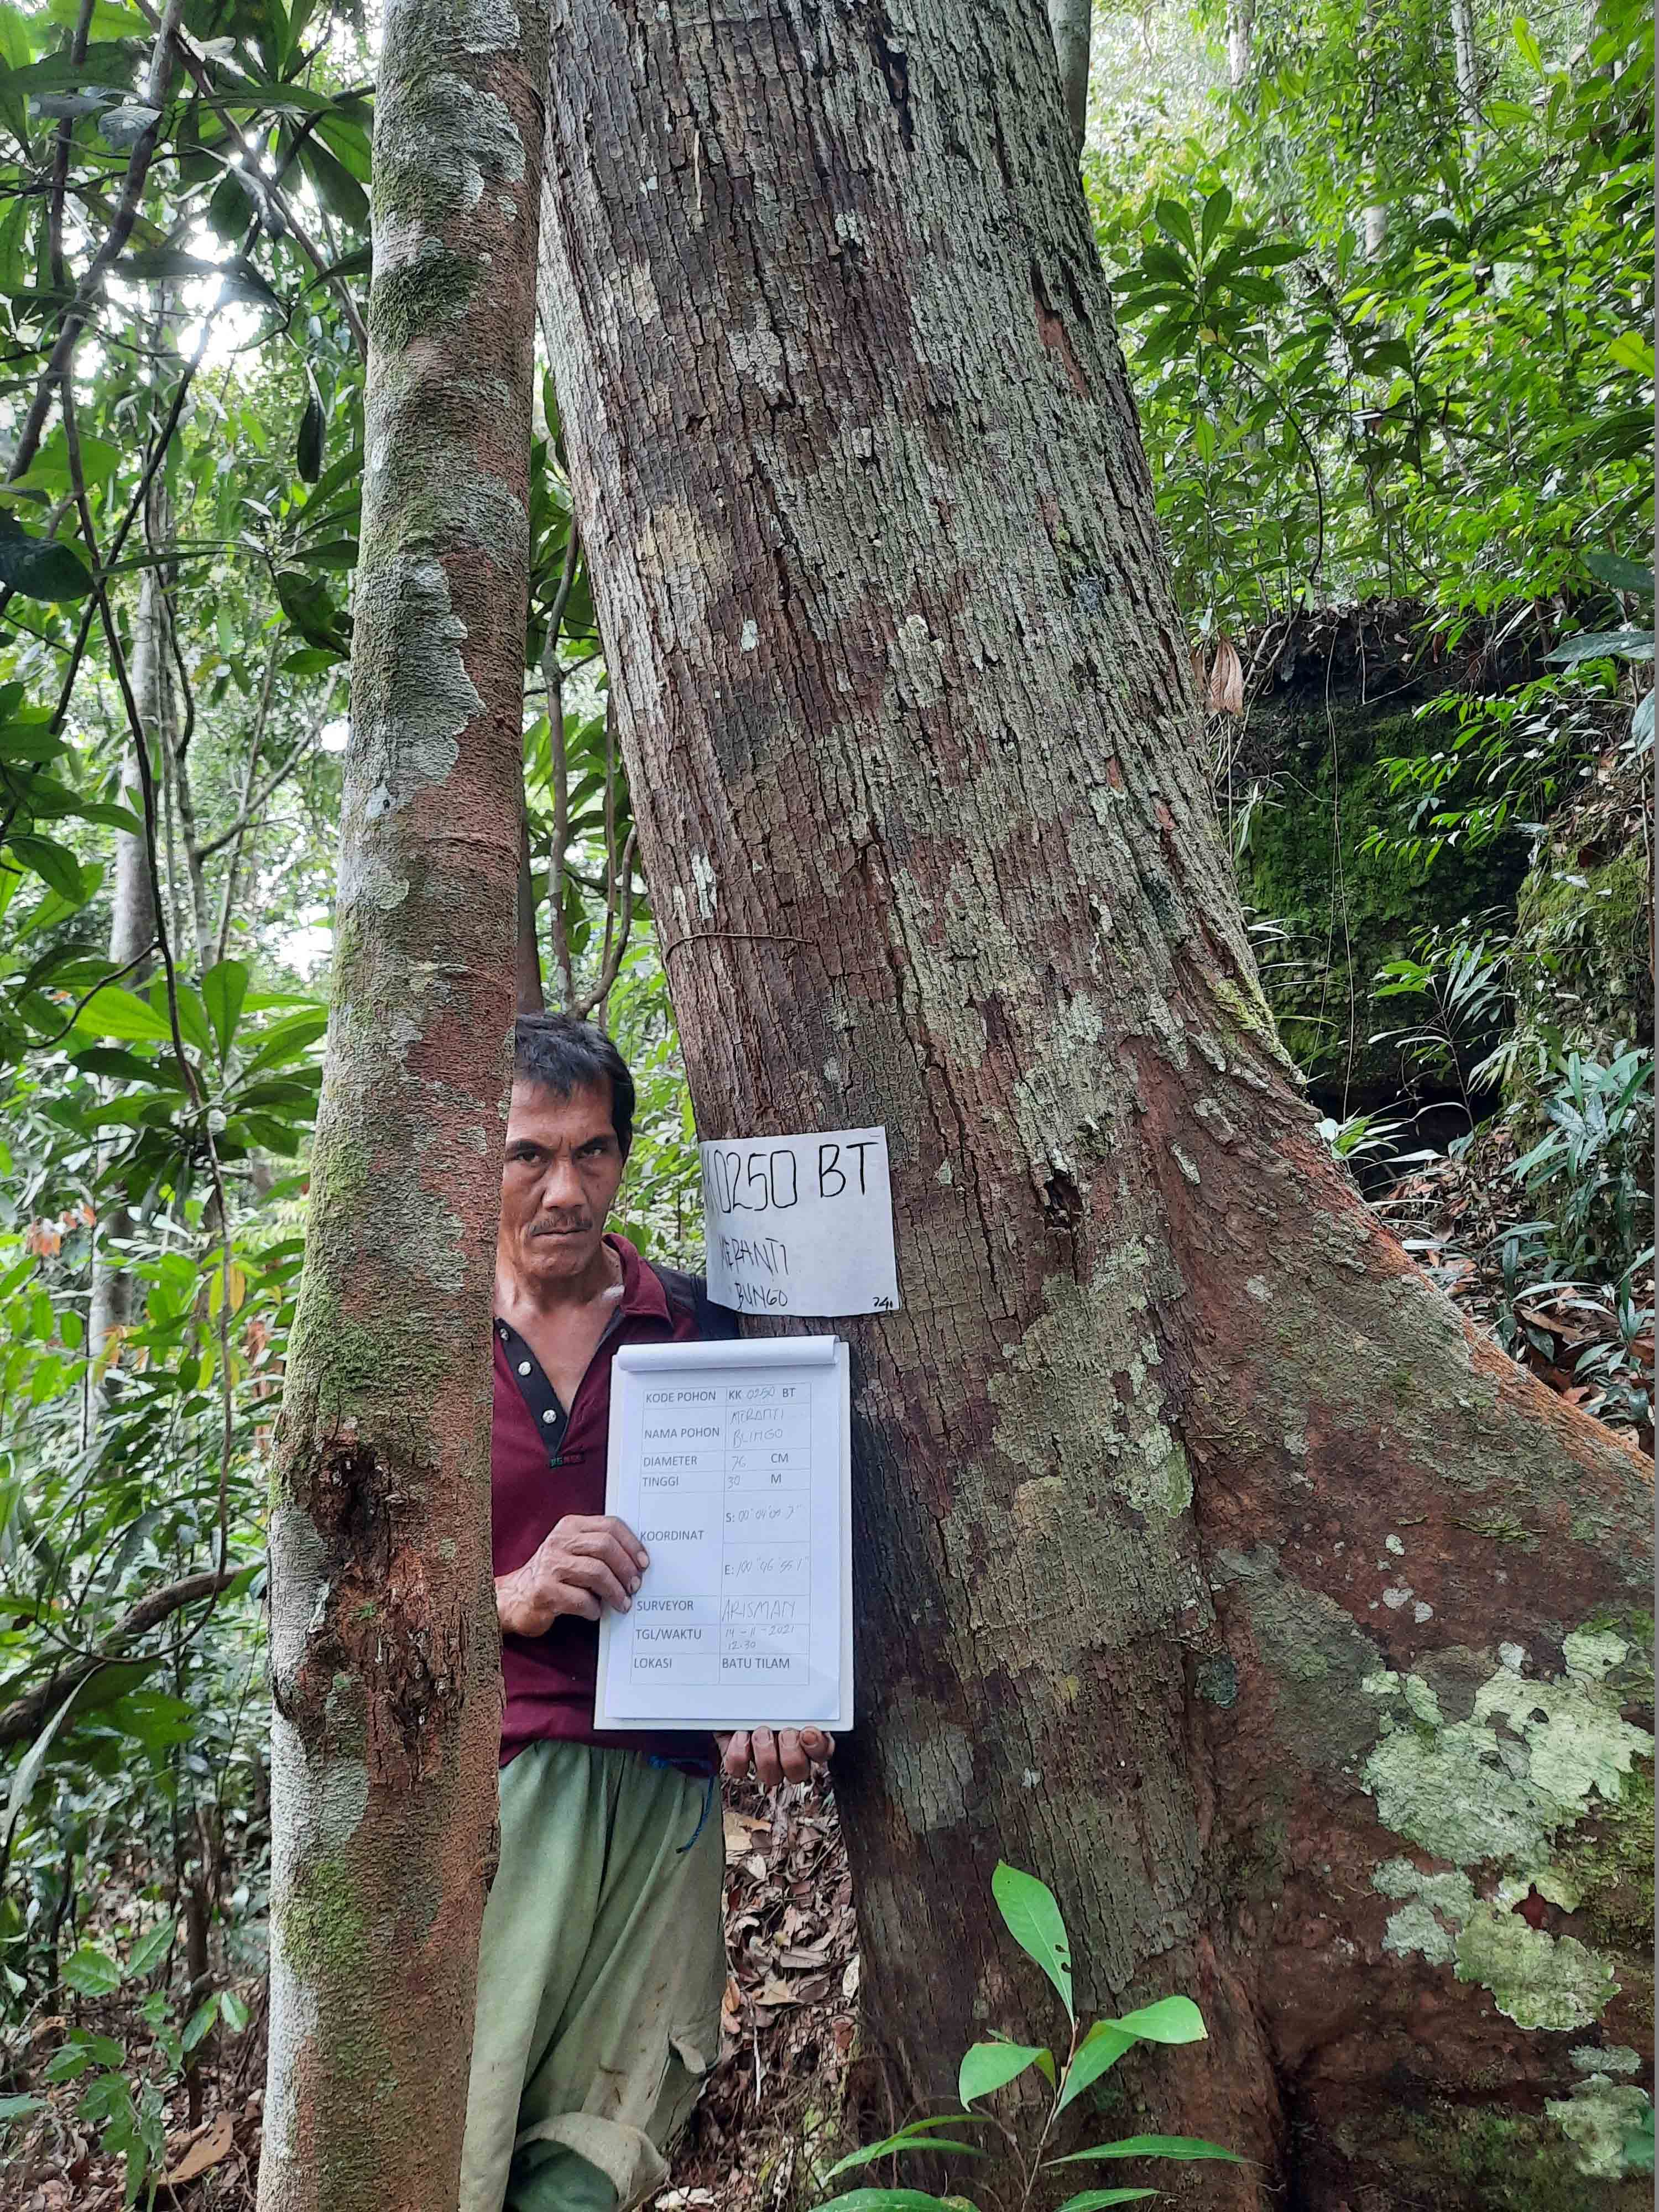 0250 BT
MERANTI
BUNGO
241
KODE POHON KK 0250 BT
NAMA POHON MERANTI
BUNGO
DIAMETER 76 CM
TINGGI 30 M
KOORDINAT
S: 00° 04'
E: 100° 46' 55.1"
SURVEYOR ARISMAN
TGL/WAKTU 14-11-2021
12:30
LOKASI BATU TILAM